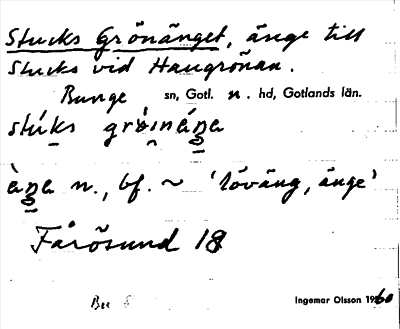 Stucks Grönänget, änge till
Stucks vid Haugrönan.
Bunge sn, Gotl. n. hd, Gotlands län.
stúks
àŋa n., bf. ~ 'löväng, änge'
Fårösund 18
Ingemar Olsson 1960